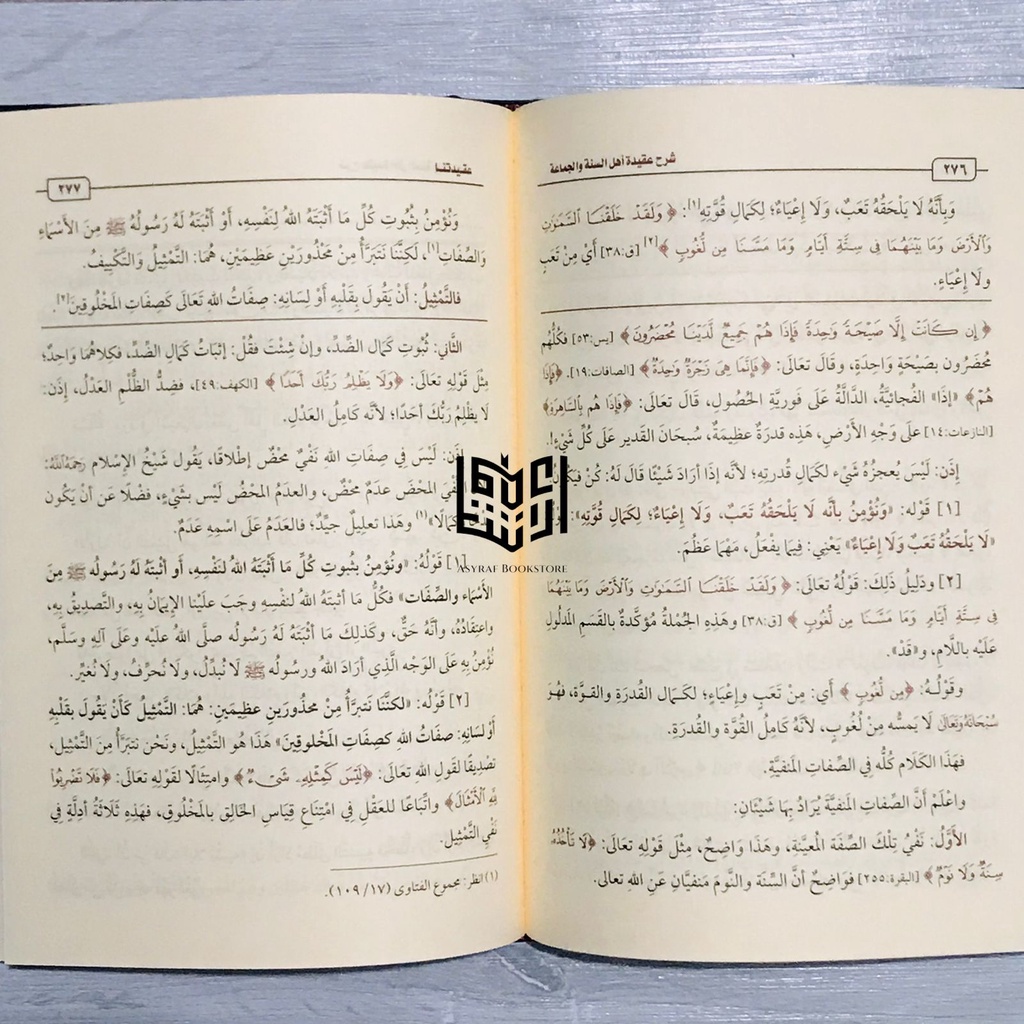 شرح عقيدة أهل السنة والجماعة
٢٧٦
وَبِأَنَّهُ لَا يَلْحَقُهُ تَعَبٌ، وَلَا إِعْيَاءٌ؛ لِكَمَالِ قُوَّتِهِ[١]: ﴿ وَلَقَدْ خَلَقْنَا السَّمَٰوَٰتِ
وَالْأَرْضَ وَمَا بَيْنَهُمَا فِي سِتَّةِ أَيَّامٍ وَمَا مَسَّنَا مِن لُّغُوبٍ ﴾[٢] [ق:٣٨] أَيْ مِنْ تَعَبٍ
وَلَا إِعْيَاءٍ.
﴿ إِن كَانَتْ إِلَّا صَيْحَةً وَٰحِدَةً فَإِذَا هُمْ جَمِيعٌ لَّدَيْنَا مُحْضَرُونَ ﴾ [يس:٥٣] فكُلُّهُم
مُحْضَرُون بِصَيْحَةٍ وَاحِدَةٍ، وقَالَ تَعَالَى: ﴿ فَإِنَّمَا هِيَ زَجْرَةٌ وَٰحِدَةٌ ﴾ [الصافات:١٩]. ﴿فَإِذَا
هُمْ﴾ «إذَا» الفُجائيَّةُ، الدالَّةُ عَلَى فَورِيَّةِ الحُصُولِ، قَالَ تَعَالَى: ﴿فَإِذَا هُم بِالسَّاهِرَةِ﴾
[النازعات:١٤] عَلَى وَجْهِ الأَرْضِ، هَذِه قدرَةٌ عظِيمَةٌ، سُبحَانَ القَدير عَلَى كُلِّ شَيْءٍ!.
إِذَن: لَيْسَ يُعجزُهُ شَيْء لكَمَالِ قُدرتِه؛ لأنَّه إذَا أرَادَ شَيْئًا قَالَ لَهُ: كُنْ فيَكُونُ.
[١] قَوْله: «وَنُؤْمِنُ بأنَّه لَا يَلْحَقُهُ تَعَبٌ، وَلَا إِعْيَاءٌ؛ لِكَمَالِ قُوَّتِهِ»:
«لَا يَلْحَقُهُ تَعَبٌ وَلَا إعْيَاءٌ» يَعْنِي: فِيمَا يفْعَلُ، مَهْمَا عَظُمَ.
[٢] ودَلِيلُ ذَلِكَ: قَوْلُهُ تَعَالَى: ﴿ وَلَقَدْ خَلَقْنَا السَّمَٰوَٰتِ وَالْأَرْضَ وَمَا بَيْنَهُمَا
فِي سِتَّةِ أَيَّامٍ وَمَا مَسَّنَا مِن لُّغُوبٍ ﴾ [ق:٣٨] وهَذِهِ الجُمْلةُ مُؤكَّدةٌ بالقَسَمِ المَدلُولِ
عَلَيْه باللَّامِ، و«قَدْ».
وقَوْلُـهُ: ﴿مِن لُّغُوبٍ ﴾ أَي: مِنْ تَعَبٍ وإعْيَاءٍ؛ لكَمَالِ القُدرَةِ والقـوَّة، فهُوَ
سُبْحَانَهُ وَتَعَالَى لَا يَمسُّه مِنْ لُغُوبٍ، لأنَّهُ كَامِلُ القُوَّة والقُدرَةِ.
فهَذَا الكَلَام كُلُّه فِي الصِّفاتِ المَنفيَّةِ.
واعْلَمْ أنَّ الصِّفاتِ المَنفيَّةَ يُرَادُ بِهَا شَيْئَانِ:
الأَوَّلُ: نَفْيُ تِلْكَ الصِّفَة المُعيَّنةِ، وهَذَا وَاضِحٌ، مِثْلَ قَوْلِهِ تَعَالَى: ﴿لَا تَأْخُذُهُ
سِنَةٌ وَلَا نَوْمٌ ﴾ [البقرة:٢٥٥] فوَاضِحٌ أنَّ السِّنَة والنَّومَ مَنفيَّانِ عَنِ اللهِ تعالى.
عقيدتنا
٢٧٧
وَنُؤْمِنُ بِثُبُوتِ كُلِّ مَا أَثْبَتَهُ اللهُ لِنَفْسِهِ، أَوْ أَثْبَتَهُ لَهُ رَسُولُهُ ﷺ مِنَ الأَسْمَاءِ
وَالصِّفَاتِ[١]، لَكِنَّنَا نَتَبَرَّأُ مِنْ مَحْذُورَيْنِ عَظِيمَيْنِ، هُمَا: التَّمْثِيلُ وَالتَّكْيِيفُ.
فالتَّمْثِيلُ: أَنْ يَقُولَ بِقَلْبِهِ أَوْ لِسَانِهِ: صِفَاتُ اللهِ تَعَالَى كَصِفَاتِ المَخْلُوقِينَ[٢].
الثَّاني: ثُبُوت كَمَال الضِّدِّ، وإنْ شِئْتَ فقُلْ: إثبَاتُ كَمَالِ الضِّدِّ، فكلاهُمَا وَاحِدٌ؛
مِثلَ قَوْلِهِ تَعَالَى: ﴿وَلَا يَظْلِمُ رَبُّكَ أَحَدًا ﴾ [الكهف:٤٩]، فضِدُّ الظُّلْمِ العَدْلُ، إذَن:
لَا يظْلِمُ رَبُّكَ أحَدًا؛ لأنَّهُ كَامِلُ العَدْلِ.
إذَن: لَيْسَ فِي صِفَاتِ اللهِ نَفْيٌ محْضٌ إطلَاقًا، يَقُول شَيْخُ الإِسْلَام رَحِمَهُ اللَّهُ:
النَّفْيَ المَحْضَ عَدمٌ محْضٌ، والعَدمُ المَحْضُ لَيْس بشَيْءٍ، فضْلًا عَنْ أنْ يَكُون
كمَالًا»(١) وهَذَا تَعلِيلٌ جيِّدٌ؛ فالعَدمُ عَلَى اسْمِهِ عَدمٌ.
[١] قَوْلُهُ: «ونُؤمِنُ بثُبوتِ كُلِّ مَا أَثْبَتَهُ اللهُ لنَفْسِهِ، أو أثبَتَهُ لَهُ رسُولُه ﷺ مِنَ
الأَسْمَاء والصِّفَات» فكُلُّ مَا أثبَتَهُ اللهُ لنفْسِهِ وجَبَ علَيْنا الإيمَانُ بِهِ، والتَّصدِيقُ بِهِ،
واعتقَادُهُ، وأنَّهُ حَقٌّ، وكَذلِكَ مَا أثبَتَهُ لَهُ رَسُولُه صلَّى اللهُ علَيْه وعَلَى آلِهِ وسلَّم،
نُؤْمنُ بِهِ عَلَى الوَجْه الَّذِي أرَادَ اللهُ ورسُولُه ﷺ لَا نُبدِّلُ، ولَا نُحرِّفُ، ولَا نُغيِّر.
[٢] قَوْلُه: «لكنَّنَا نَتبَرأُ مِنْ محذُورَينِ عظِيمَينِ: هُمَا: التَّمْثِيلُ كَأَنْ يَقُولَ بقَلْبِهِ
أوْ لسَانِهِ: صفَاتُ اللهِ كصِفَاتِ المَخْلوقِينَ» هَذَا هُو التَّمْثِيلُ، ونَحْن نَتبَرأُ مِنَ التَّمْثِيلِ،
تصْدِيقًا لقَولِ اللهِ تَعَالَى: ﴿لَيْسَ كَمِثْلِهِ شَيْءٌ ﴾ وامتِثَالًا لقَولِهِ تَعَالَى: ﴿فَلَا تَضْرِبُوا
لِلَّهِ الْأَمْثَالَ﴾ واتِّبَاعًا للعَقْلِ فِي امْتِنَاعِ قِيَاسِ الخَالِقِ بالمَخْلُوقِ، فهَذِهِ ثَلَاثَةُ أَدِلةٍ فِي
نَفْيِ التَّمْثِيلِ.
(١) انظر: مجموع الفتاوى (١٧/ ١٠٩).
ASYRAF BOOKSTORE